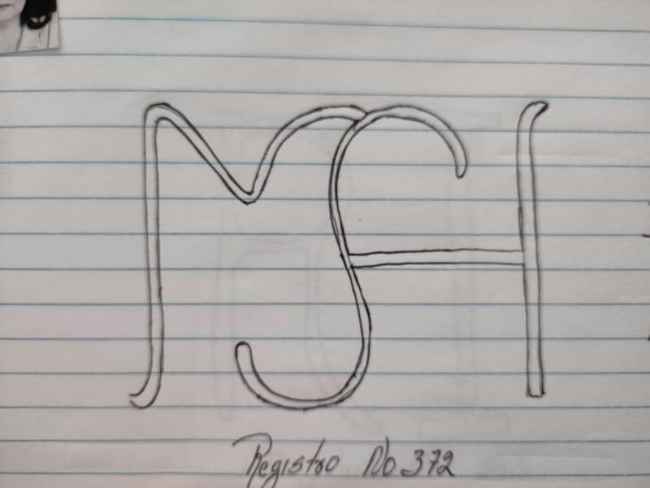 MSH
Registro No. 372